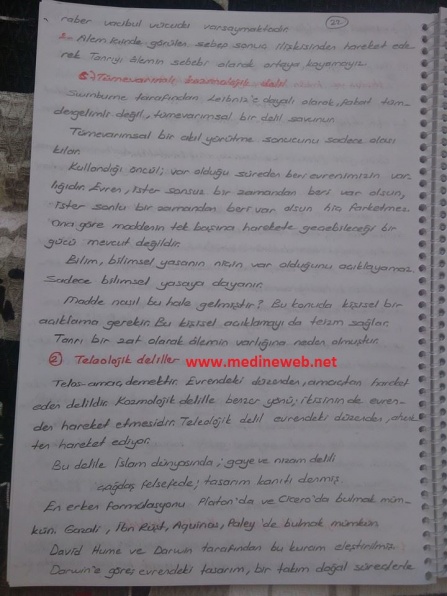 raber vacibul vucudu varsaymaktadır.
22
2- Alem içinde görülen sebep sonuç ilişkisinden hareket ede
rek Tanrıyı alemin sebebi olarak ortaya koyamayız.
c) Tümevarımlı kozmolojik delil
Swinburne tarafından Leibniz'e dayalı olarak, fakat tüm
dengelimli değil, tümevarımsal bir delil savunur.
Tümevarımsal bir akıl yürütme sonucunu sadece olası
kılar.
Kullandığı öncül; var olduğu süreden beri evrenimizin var
lığıdır. Evren, ister sonsuz bir zamandan beri var olsun,
ister sonlu bir zamandan beri var olsun hiç farketmez.
Ona göre maddenin tek başına harekete geçebileceği bir
gücü mevcut değildir.
Bilim, bilimsel yasanın niçin var olduğunu açıklayamaz
Sadece bilimsel yasaya dayanır.
Madde nasıl bu hale gelmiştir? Bu konuda kişisel bir
açıklama gerekir. Bu kişisel açıklamayı da teizm sağlar.
Tanrı bir zat olarak alemin varlığına neden olmuştur.
2 Teleolojik deliller www.medineweb.net
Telos-amaç, demektir. Evrendeki düzenden, amaçtan hareket
eden delildir. Kozmolojik delille benzer yönü; ikisinin de evren-
den hareket etmesidir. Teleolojik delil evrendeki düzenden,
ten hareket ediyor.
Bu delile İslam dünyasında; gaye ve nizam delili
çağdaş felsefede; tasarım kanıtı denmiş
En erken formülasyonu Platon'da ve Cicero'da bulmak müm-
kün. Gazali, İbn Rüşt, Aquinas, Paley'de bulmak mümkün
David Hume ve Darwin tarafından bu kuram eleştirilmiş.
Darwin'e göre; evrendeki tasarım, bir takım doğal süreçlerle